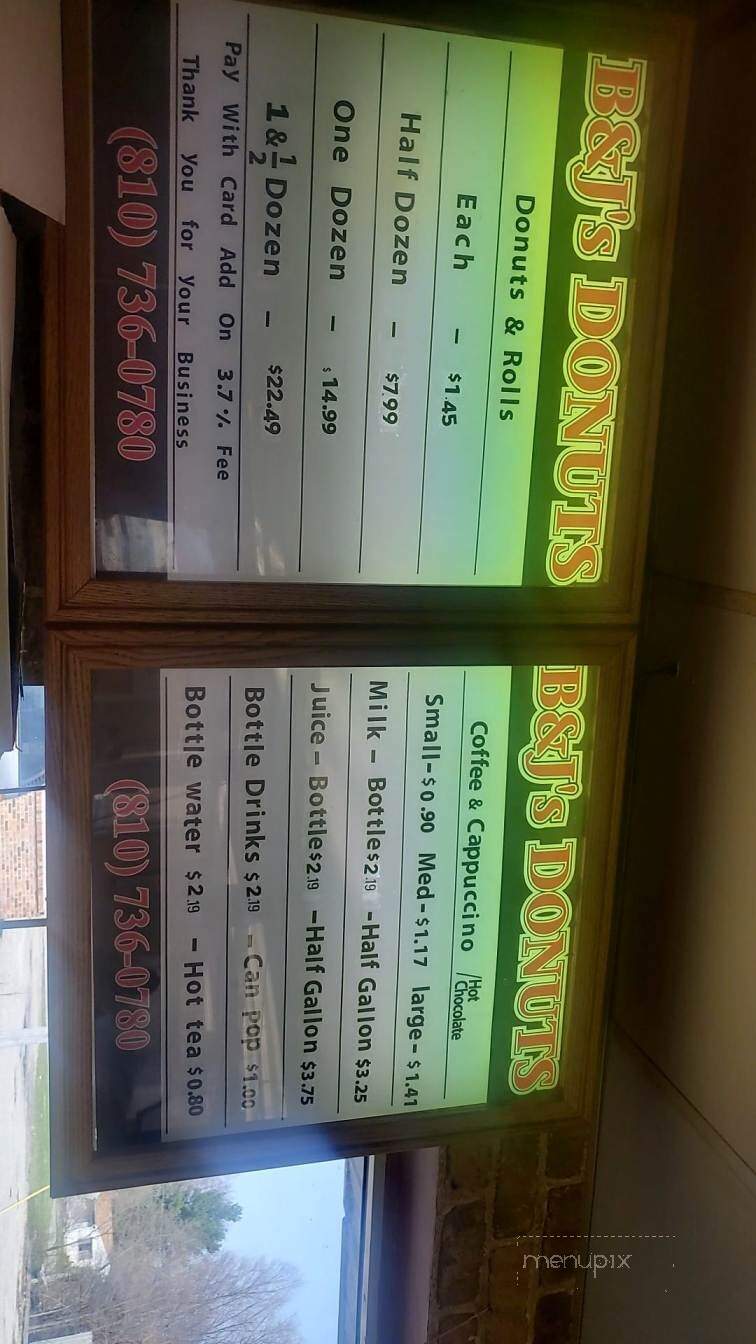 B&J's DONUTS
Donuts & Rolls
Each - $1.45
Half Dozen - $7.99
One Dozen - $14.99
1 & 1/2 Dozen - $22.49
Pay With Card Add On 3.7% Fee
Thank You for Your Business
(810) 736-0780
B&J's DONUTS
Coffee & Cappuccino /Hot Chocolate
Small-$0.90 Med-$1.17 large-$1.41
Milk - Bottle$2.19 -Half Gallon $3.25
Juice - Bottle$2.19 -Half Gallon $3.75
Bottle Drinks $2.19 - Can pop $1.00
Bottle water $2.19 - Hot tea $0.80
(810) 736-0780
menupix